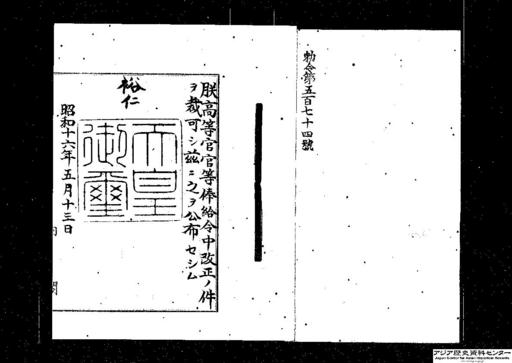 勅令第五百七十四號
朕高等官官等俸給令中改正ノ件
ヲ裁可シ茲ニ之ヲ公布セシム
裕仁
天皇
御璽
昭和十六年五月十三日
内閣
アジア歴史資料センター
Japan Center for Asian Historical Records